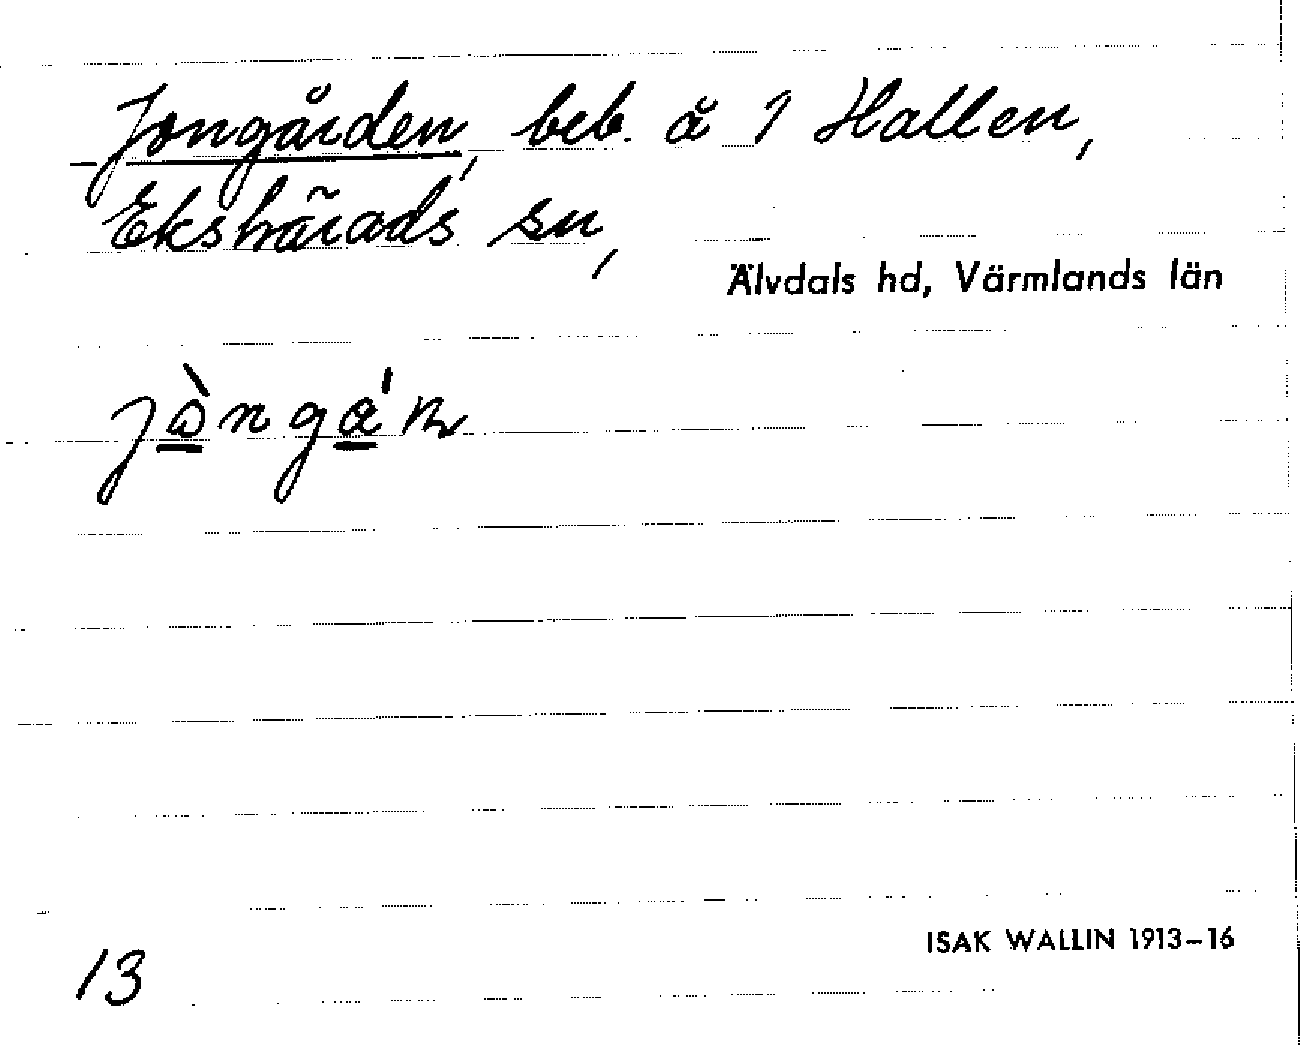 Jongården, beb. å 1 Hallen,
Ekshärads sn,
Älvdals hd, Värmlands län
ISAK WALLIN 1913–16
13